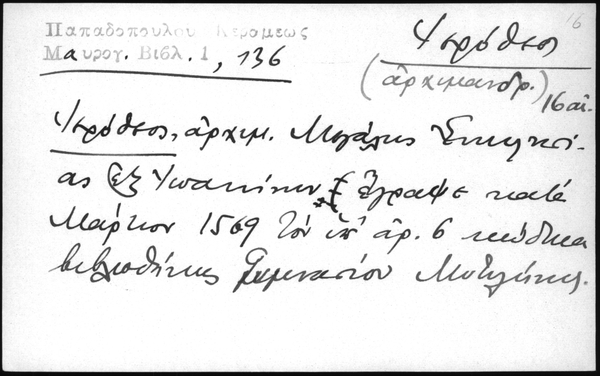 16
Παπαδοπούλου Κεραμέως
Μαυρογ. Βιβλ. 1, 136
Ἱερόθεος
(ἀρχιμανδρ.)
16 αἰ.
Ἱερόθεος, ἀρχιμ. Μεγάλης Ἐκκλησί-
ας ἐξ Ἰωαννίνων ἔγραψε κατά
Μάρτιον 1569 τόν ὑπ' ἀρ. 6 κώδικα
βιβλιοθήκης Γυμνασίου Μυτιλήνης.